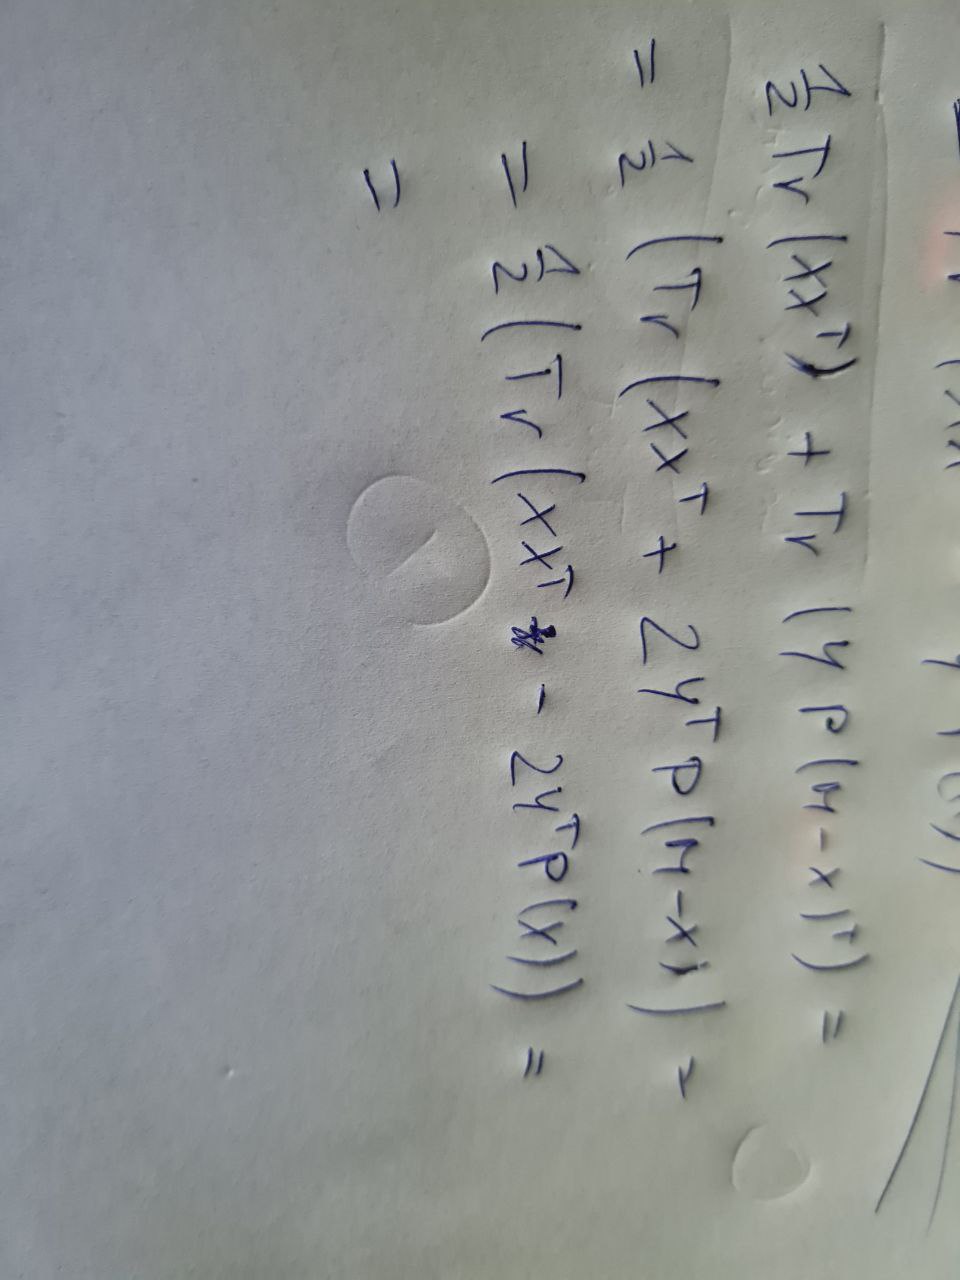 ½ Tr (XXᵀ) + Tr (Y P(M-X)ᵀ) =
= ½ (Tr (XXᵀ + 2YᵀP(M-X)) =
= ½ (Tr (XXᵀ - 2YᵀP(X)) =
=